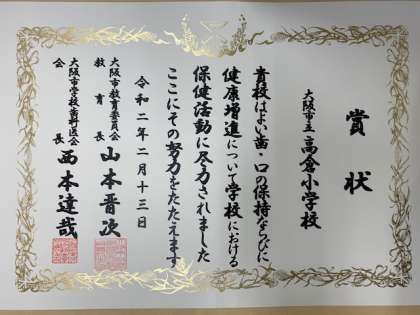 賞状
大阪市立高倉小学校
貴校はよい歯・口の保持ならびに
健康増進について学校における
保健活動に尽力されました
ここにその努力をたたえます
令和二年二月十三日
大阪市教育委員会
教育長 山本晋次
大阪市学校歯科医会
会長 西本達哉